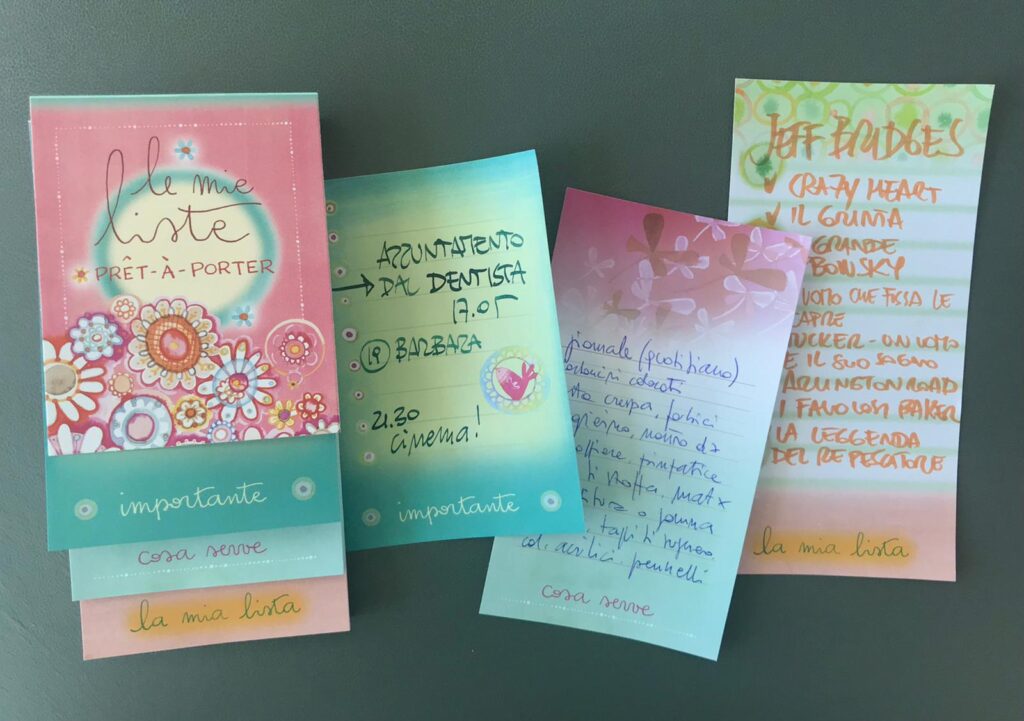 le mie
liste
PRÊT-À-PORTER
importante
cosa serve
la mia lista
APPUNTAMENTO
DAL DENTISTA
17.05
19 BARBARA
21.30
cinema!
importante
giornale (quotidiano)
colorati
crespa, forbici
nastro da
pinzatrice
stoffa,
o gomma
tappi di sughero
col. acrilici, pennelli
cosa serve
JEFF BRIDGES
CRAZY HEART
IL GRINTA
GRANDE
BOWSKY
UOMO CHE FISSA LE
CAPRE
TUCKER - UN UOMO
E IL SUO SOGNO
ARLINGTON ROAD
I FAVOLOSI BAKER
LA LEGGENDA
DEL RE PESCATORE
la mia lista